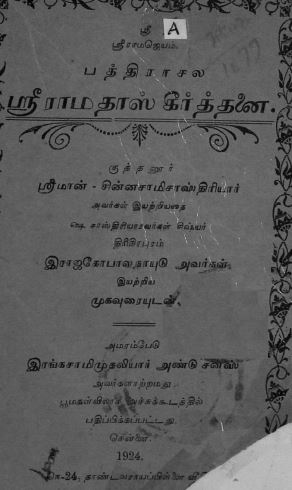 ஸ்ரீ
A
ஸ்ரீராமஜெயம்.
பத்திராசல
ஸ்ரீ ராமதாஸ் கீர்த்தனை.
குத்தனூர்
ஸ்ரீமான் - சின்னசாமிசாஸ்திரியார்
அவர்கள் இயற்றியதை
ஷை சாஸ்திரியாரவர்கள் சிஷ்யர்
திரிசிரபுரம்
இராஜகோபாலநாயுடு அவர்கள்
இயற்றிய
முகவுரையுடன்.
அமரம்பேடு
இரங்கசாமிமுதலியார் அண்டு சன்ஸ்
அவர்களாற்றமது
பூமகள்விலாச அச்சுக்கூடத்தில்
பதிப்பிக்கப்பட்டது.
சென்னை.
1924.
24, தாண்டவராயப்பிள்ளை